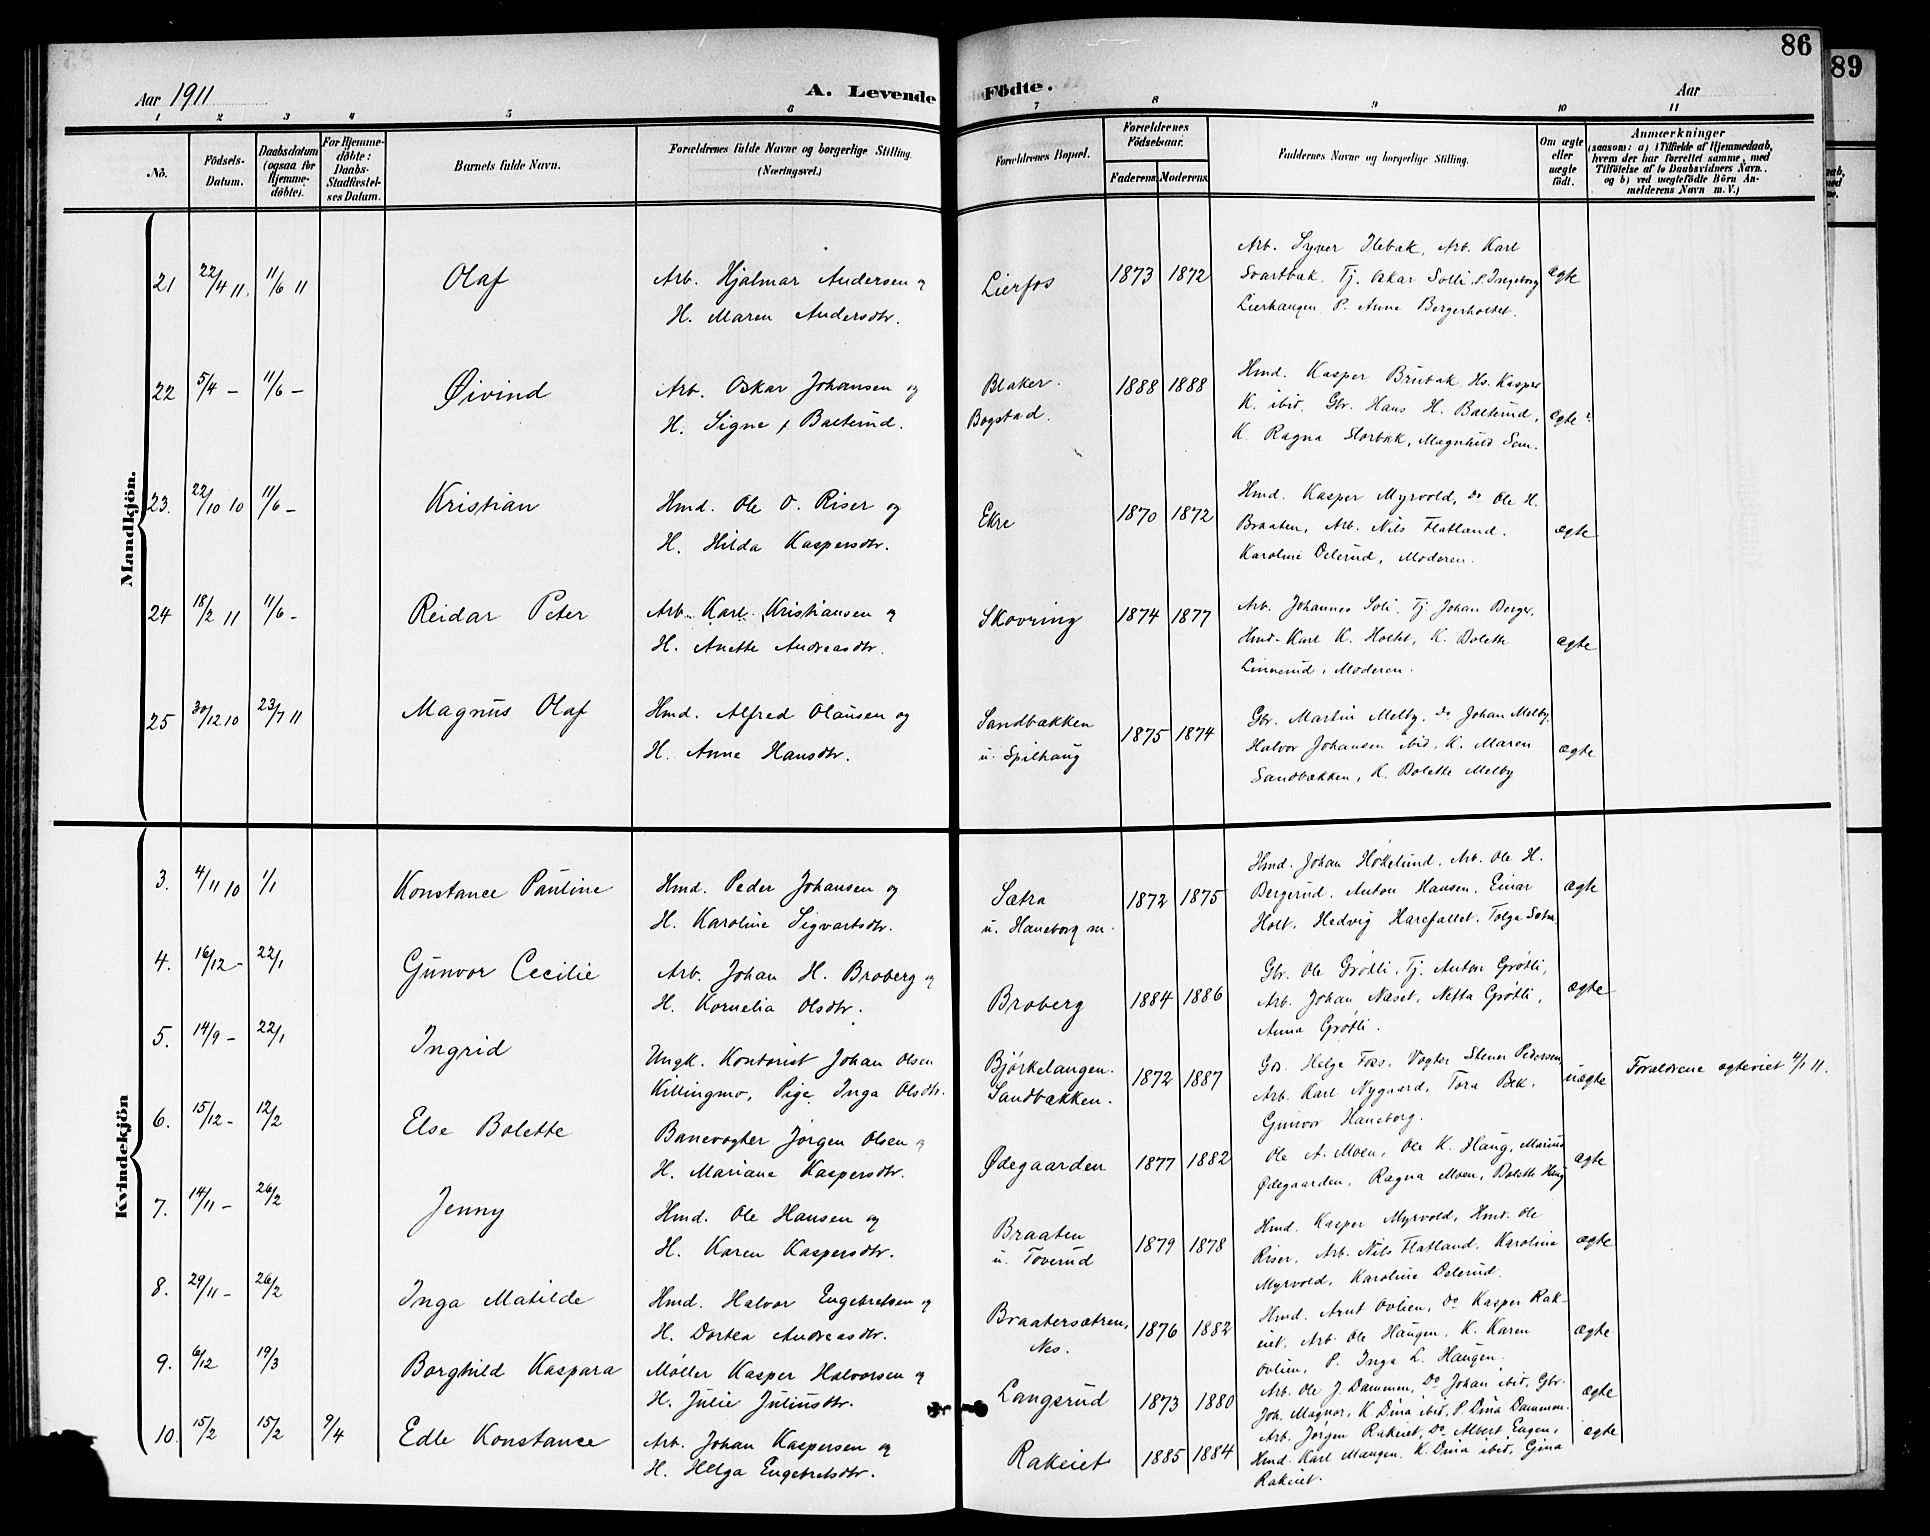 86
89
Aar 1911
A. Levende Födte.
Aar
1 2 3 4 5 6 7 8 9 10 11
No.
Födsels-Datum.
Daabsdatum (ogsaa for Hjemme-döbte).
For Hjemme-döbte: Daabs-Stadfæstel-ses Datum.
Barnets fulde Navn.
Forældrenes fulde Navne og borgerlige Stilling. (Næringsvei.)
Forældrenes Bopæl.
Forældrenes Födselsaar.
Faderens. Moderens.
Faddernes Navne og borgerlige Stilling.
Om ægte eller uægte födt.
Anmærkninger
(saasom: a) i Tilfælde af Hjemmedaab, hvem der har forrettet samme, med Tilföielse af to Daabsvidners Navn, og b) ved uægtefödte Börn An-melderens Navn m. V.)
Mandkjön.
21 22/4 11. 11/6 11 Olaf Arb. Hjalmar Andersen og Lierfos 1873 1872 Arb. Syver Ilebæk, Arb. Karl ægte
H. Maren Andersdtr. Svartbæk, Tj. Oskar Solli, P. Ingeborg
Lierhaugen, P. Anne Bergerholtet.
22 5/4 - 11/6 - Øivind Arb. Oskar Johansen og Blaker. 1888 1888 Hmd. Kasper Brubæk, Hs. Kasper
H. Signe f Balterud. Bogstad. K. ibid, Gbr. Hans H. Balterud, ægte?
K. Ragna Storbæk, Magnhild Sem.
23. 22/10 10 11/6 - Kristian Hmd. Ole O. Riser og Ekre 1870 1872 Hmd. Kasper Myrvold, do Ole H.
H. Hilda Kaspersdtr. Braaten, Arb. Nils Flatland. ægte
Karoline Delerud, Moderen.
24 18/2 11 11/6 - Reidar Peter Arb. Karl Kristiansen og Skovring 1874 1877 Arb. Johannes Soli, Tj. Johan Berger,
H. Anette Andreasdtr. Hmd. Karl K. Holtet, K. Bolette ægte
Linnerud, Moderen.
25 30/12 10 23/7 11 Magnus Olaf Hmd. Alfred Olausen og Sandbækken 1875 1874 Gbr. Martin Melby, do Johan Melby,
H. Anne Hansdtr. u. Spilhaug Halvor Johansen ibid, K. Maren ægte
Sandbækken, K. Bolette Melby
Kvindekjön
3. 4/11 10 1/1 Konstance Pauline Hmd. Peder Johansen og Sætra 1872 1875 Hmd. Johan Høkelund, Arb. Ole H. ægte
H. Karoline Sigvartsdtr. u. Haneborg m. Bergerud, Anton Hansen, Einar
Holt, Hedvig Harefallet, Tolga Sætra
4. 16/12 - 22/1 Gunvor Cecilie Arb. Johan H. Broberg og Broberg 1884 1886 Gbr. Ole Grötli, Tj. Anton Grötli, ægte
H. Kornelia Olsdtr. Arb. Johan Næset, Netta Grötli,
Anna Grötli.
5. 14/9 - 22/1 Ingrid Ungk. Kontorist Johan Olsen Bjørkelangen. 1872 1887 Gbr. Helge Foss, Vogter Stener Pedersen, uægte Forældrene ægteviet 4/1 11.
Killingmo, Pige Inga Olsdtr. Sandbækken. Arb. Karl Nygaard, Tora Bek,
Gunvor Haneborg.
6. 15/12 - 12/2 Else Bolette Banevogter Jørgen Olsen og Ødegaarden 1877 1882 Ole A. Moen, Ole K. Haug, Marius ægte
H. Mariane Kaspersdtr. Ødegaarden, Ragna Moen, Bolette Haug
7. 14/11 - 26/2 Jenny Hmd. Ole Hansen og Braaten 1879 1878 Hmd. Kasper Myrvold, Hmd. Ole ægte
H. Karen Kaspersdtr. u. Toverud Riser, Arb. Nils Flatland, Karoline
Myrvold, Karoline Delerud.
8. 29/11 - 26/2 Inga Matilde Hmd. Halvor Engebretsen og Braatersætren, 1876 1882 Hmd. Arnt Ovlien, do Kasper Rak- ægte
H. Dortea Andreasdtr. Nes. eiet, Arb. Ole Haugen, K. Karen
Ovlien, P. Inga L. Haugen.
9. 6/12 19/3 Borghild Kaspara Møller Kasper Halvorsen og Langsrud 1873 1880 Arb. Ole J. Dammen, Do Johan ibid, Gbr. ægte
H. Julie Juliusdtr. Joh. Magnor, K. Dina ibid, P. Dina Dammen.
10. 15/2 15/2 9/4 Edle Konstance Arb. Johan Kaspersen og Rakeiet 1885 1884 Arb. Jørgen Rakeiet, Do Albert Eugen, ægte
H. Helga Engebretsdtr. Hmd. Karl Mangen, K. Dina ibid, Gina
Rakeiet.